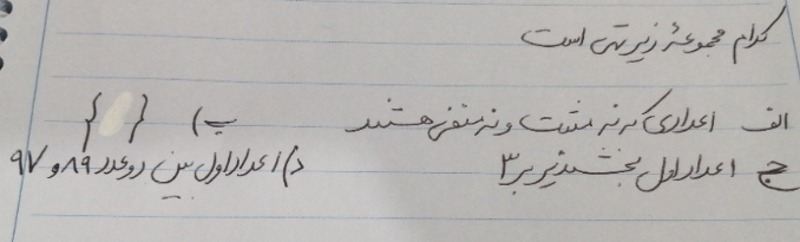 کدام مجموعهٔ زیر تهی است
الف اعدادی که نه مثبت و نه منفی هستند ب) { }
ج اعداد اول بخشپذیر بر ۳ د) اعداد اول بین دو عدد ۸۹ و ۹۷